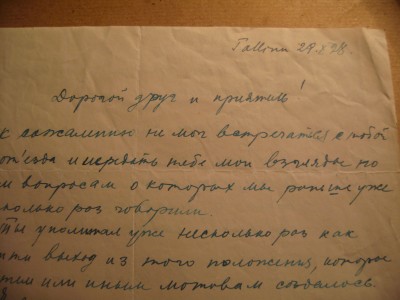 Tallinn 29.X 98.
Дорогой друг и приятель!
к сожалению не мог встречаться с тобой
от'езда и передать тебе мои взгляды по
м вопросам о которых мы раньше уже
сколько раз говорили.
Ты упоминал уже несколько раз как
йти выход из этого положения, которое
тем или иным мотовам создалось.